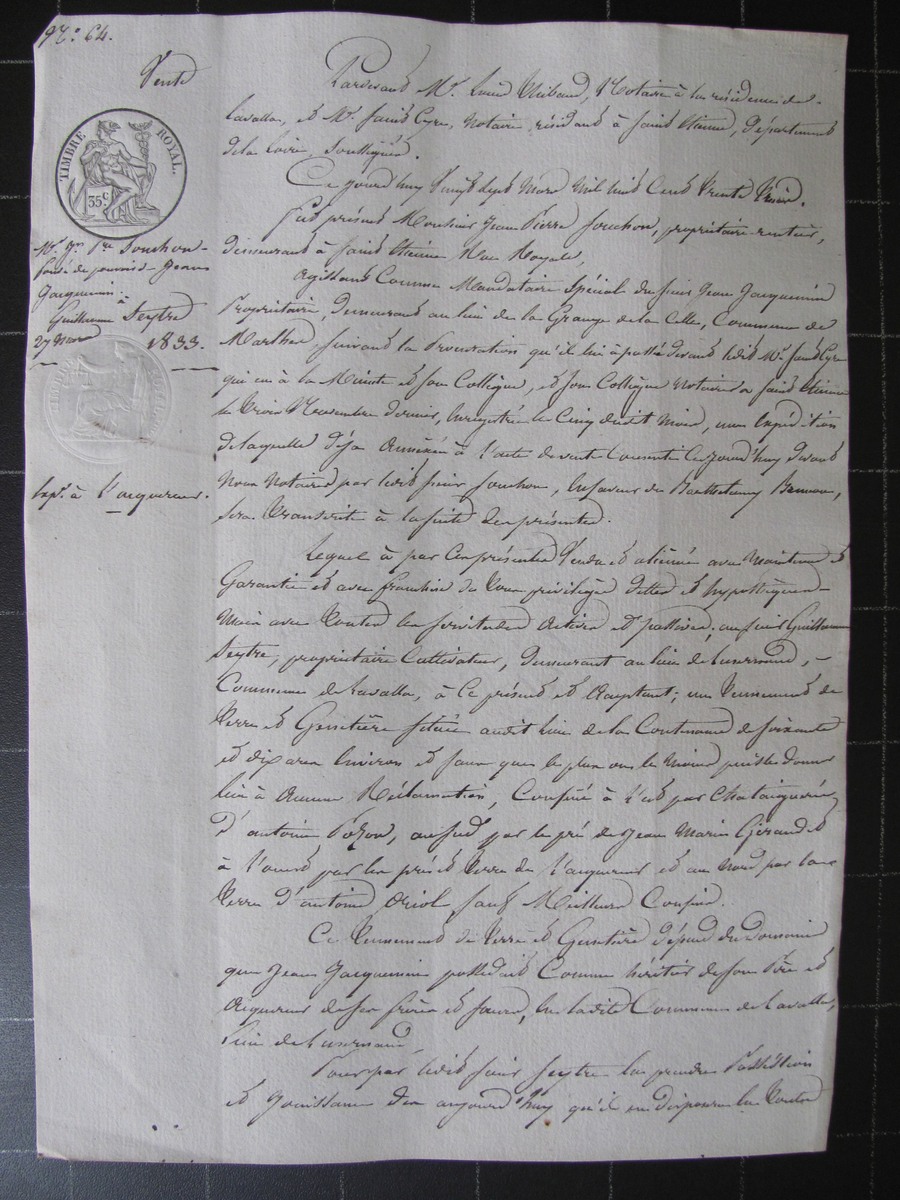 N.° 64.
Vente
TIMBRE ROYAL.
35c
Mr. Jn. Pre. Souchon
fondé de pouvoir de Jean
Jacquemin
à
Guillaume Seytre
27 Mars 1833.
Exp. à l'acquereur.
Pardevant Me. Thibaud, Notaire à la résidence de
Lavalla, et Me. Saint Cyr, Notaire résidant à Saint Etienne, département
de la Loire Soussignés.
Ce jourd'huy Vingt Sept Mars Mil huit Cent Trente Trois.
fut présent Monsieur Jean Pierre Souchon, propriétaire rentier,
demeurant à Saint Etienne Rue Royale,
Agissant Comme Mandataire Spécial du sieur Jean Jacquemin
Propriétaire, demeurant au lieu de la Grange de la Celle, Commune de
Marlhes, suivant la Procuration qu'il lui à passé devant ledit Me. Saint Cyr
qui en à la Minute et son Collègue, Notaires à Saint Etienne
le Trois Novembre dernier, Enregistrée le Cinq dudit Mois, une Expédition
de laquelle déja Annéxée à l'acte de vente Consentie Ce jourd'huy devant
Nous Notaires par ledit sieur Souchon, En faveur de Barthélemy
sera Transcrite à la suite des présentes.
Lequel à par Ces présentes Vendu et aliéné avec Maintenue et
Garantie et avec franchise de Tous privilèges dettes et hypothèques
Mais avec Toutes les servitudes Actives Et passives; au sieur Guillaume
Seytre, propriétaire Cultivateur, demeurant au lieu de Luzernod,
Commune de Lavalla, à Ce présent et Acceptant; un Tennement de
Terre et Genetière située audit lieu de la Contenance de soixante
et dix ares Environ et sans que le plus ou le Moins puisse donner
lieu à Aucune Réclamation, Confiné à l'est par Chataigneraie
d'antoine, au sud par le pré de Jean Marie Giraud et
à l'ouest par les prés et Terre de l'acquereur et au Nord par la
Terre d'antoine Oriol, sauf Meilleurs Confins.
Ce Tennement de Terre et Genetière dépend du Domaine
que Jean Jacquemin possédait Comme héritier de son Père et
Acquereur de ses frères et soeurs, En ladite Commune de Lavalla,
Lieu de Luzernod.
Pour par ledit sieur Seytre En prendre Possession
et Jouissance dès aujourd'huy qu'il en dispose En Toute